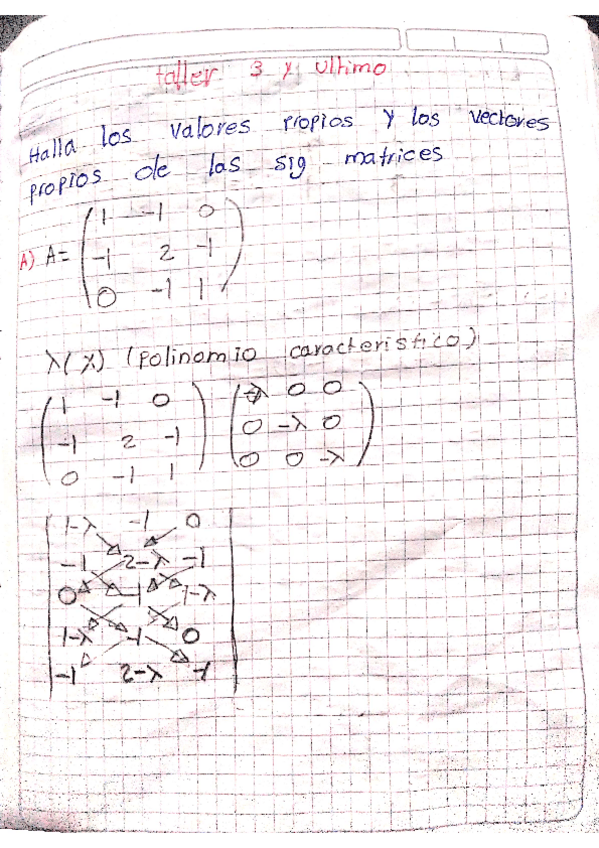 taller 3 y Ultimo
Halla los valores propios y los vectores
propios de las sig matrices
A) A= (1 -1 0
-1 2 -1
0 -1 1)
λ(λ) (polinomio caracteristico)
(1 -1 0) (-λ 0 0)
(-1 2 -1) (0 -λ 0)
(0 -1 1) (0 0 -λ)
|1-λ -1 0|
|-1 2-λ -1|
|0 -1 1-λ|
|1-λ -1 0|
|-1 2-λ -1|